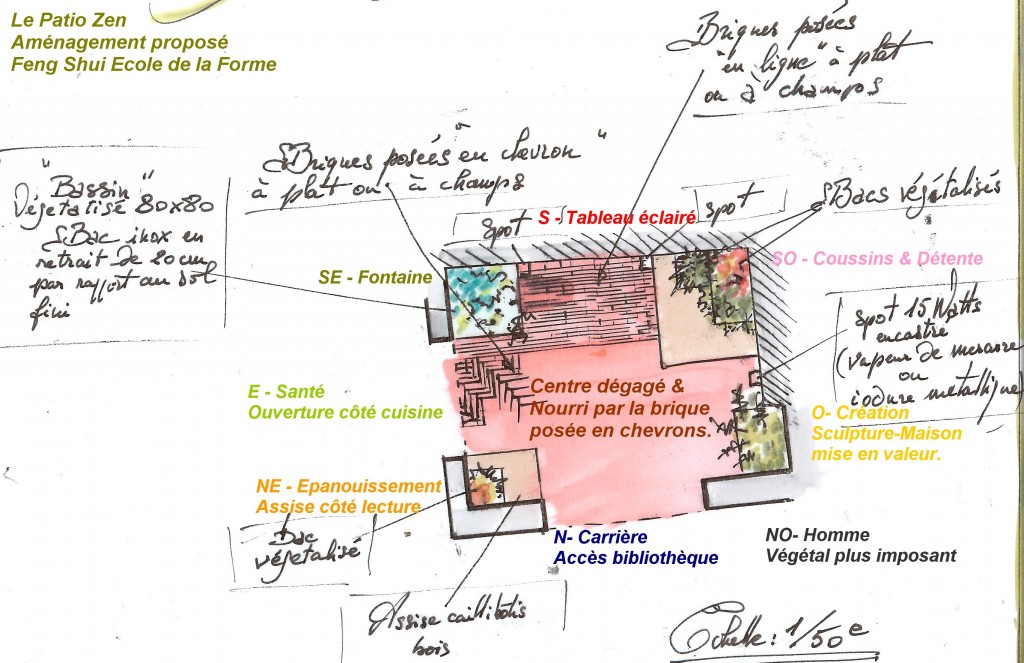 Le Patio Zen
Aménagement proposé
Feng Shui Ecole de la Forme
Briques posées
"en ligne" à plat
ou à champs
Briques posées "en chevron"
à plat ou à champs
"Bassin"
Végétalisé 80x80
Bac inox en
retrait de 20cm
par rapport au sol
fini
spot
S - Tableau éclairé
spot
Bacs végétalisés
SE - Fontaine
SO - Coussins & Détente
spot 15 Watts
encastré
(vapeur de mercure
ou
iodure métallique)
E - Santé
Ouverture côté cuisine
Centre dégagé &
Nourri par la brique
posée en chevrons.
O- Création
Sculpture-Maison
mise en valeur.
NE - Epanouissement
Assise côté lecture
Bac
végétalisé
N- Carrière
Accès bibliothèque
NO- Homme
Végétal plus imposant
Assise caillibotis
bois
Echelle: 1/50e